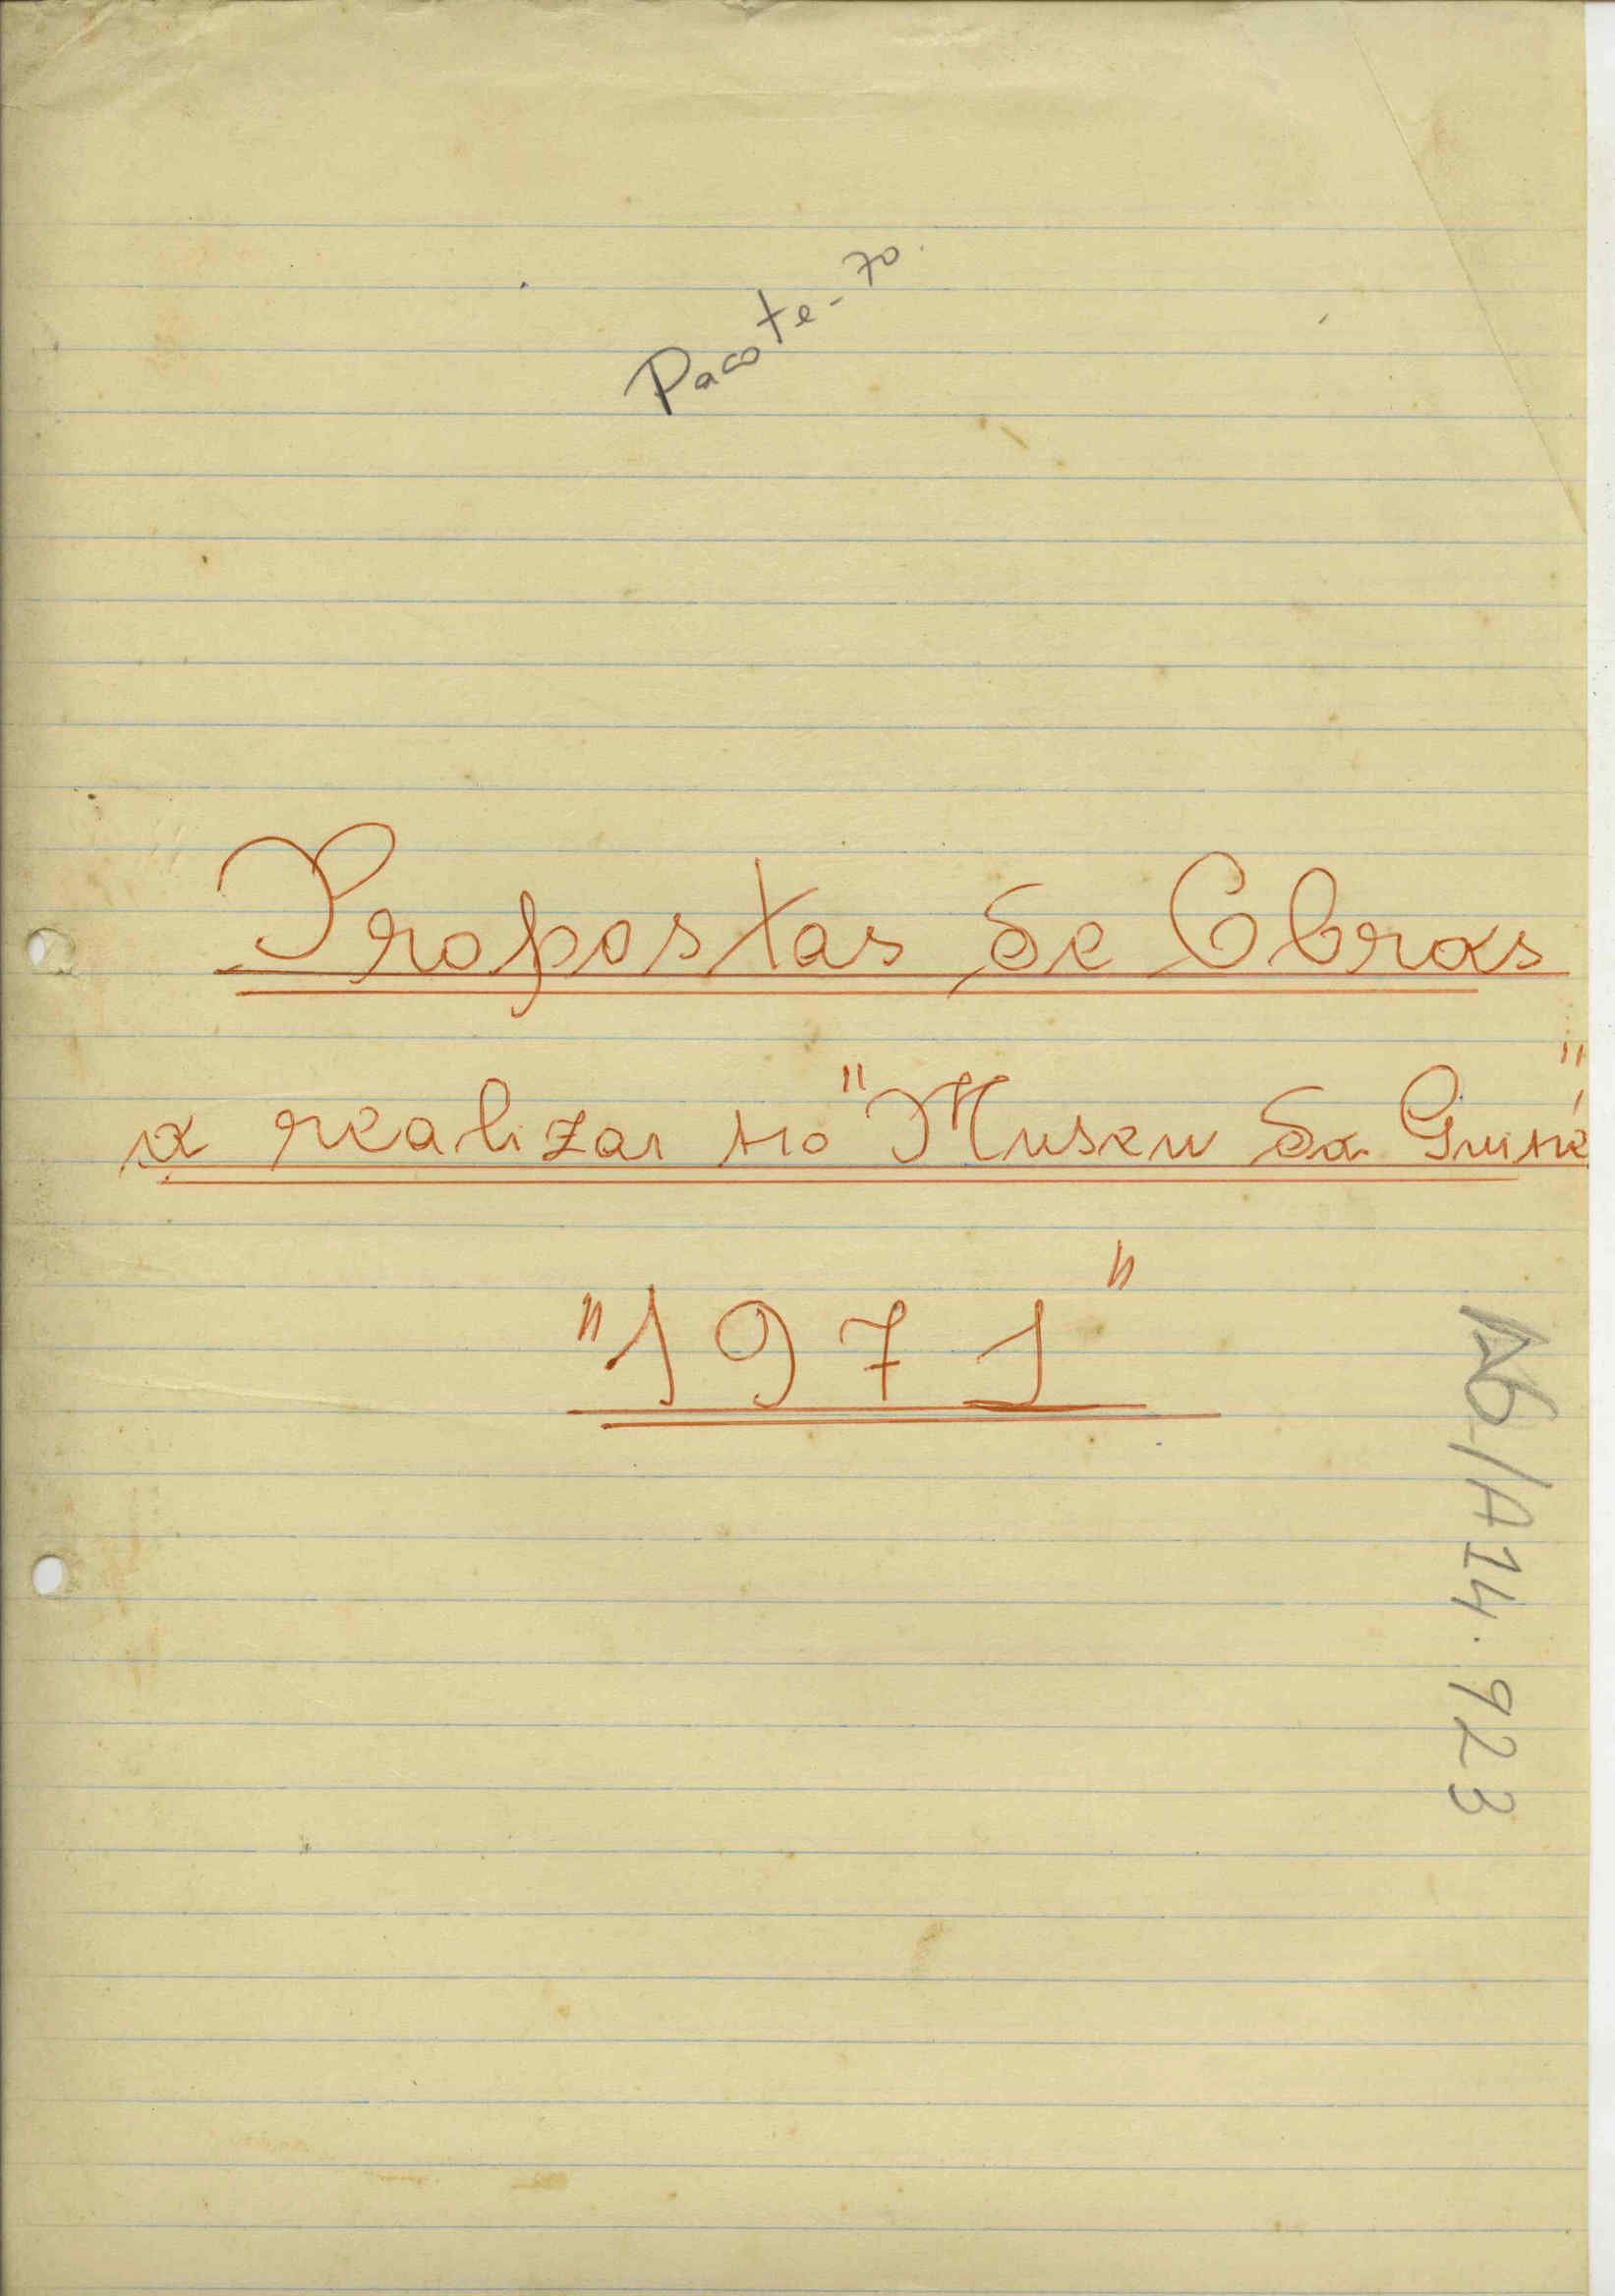 Pacote - 70.
Propostas de Obras
a realizar no "Museu da Guiné"
"1971"
/A14.923